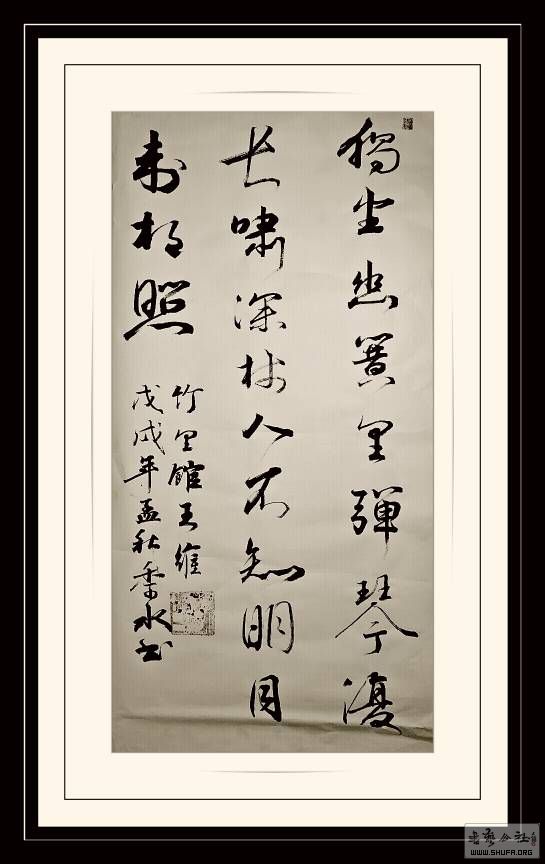 獨坐幽篁里彈琴復
长嘯深林人不知明月
来相照
竹里館王維
戊戌年孟秋水书
书艺公社
WWW.SHUFA.ORG